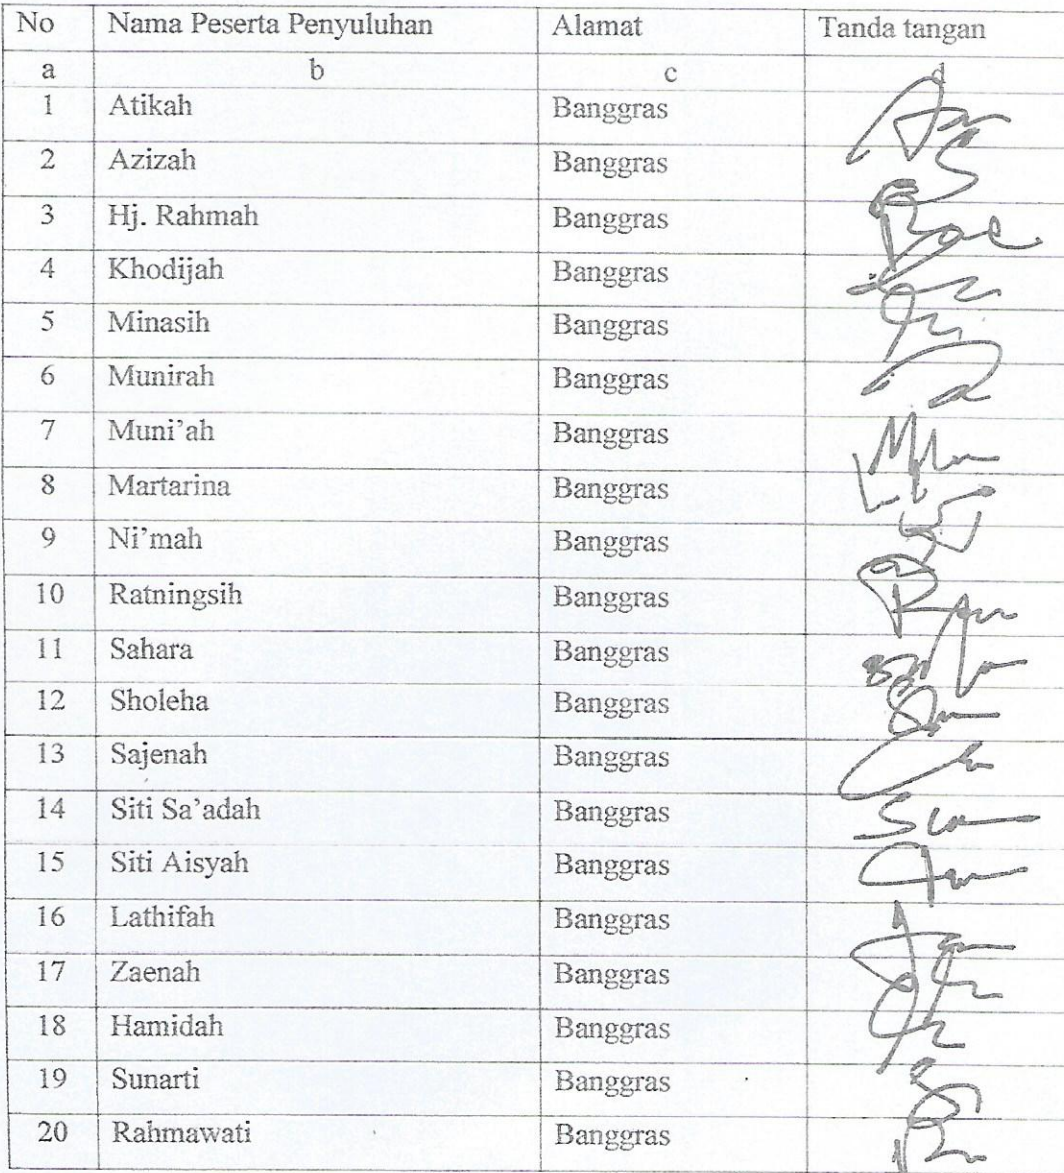 No Nama Peserta Penyuluhan Alamat Tanda tangan
a b c d
1 Atikah Banggras
2 Azizah Banggras
3 Hj. Rahmah Banggras
4 Khodijah Banggras
5 Minasih Banggras
6 Munirah Banggras
7 Muni’ah Banggras
8 Martarina Banggras
9 Ni’mah Banggras
10 Ratningsih Banggras
11 Sahara Banggras
12 Sholeha Banggras
13 Sajenah Banggras
14 Siti Sa’adah Banggras
15 Siti Aisyah Banggras
16 Lathifah Banggras
17 Zaenah Banggras
18 Hamidah Banggras
19 Sunarti Banggras
20 Rahmawati Banggras